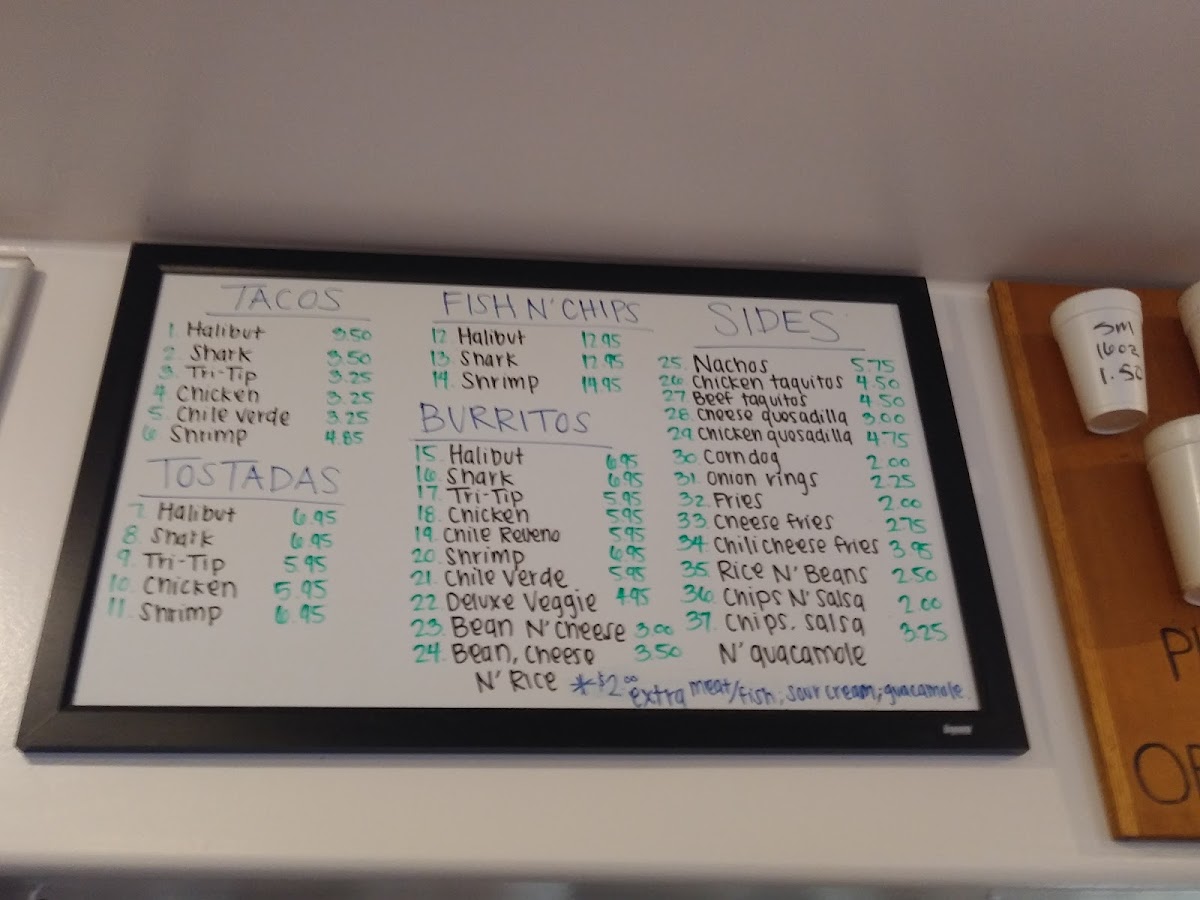 TACOS
1. Halibut 3.50
2. Shark 3.50
3. Tri-Tip 3.25
4. Chicken 3.25
5. Chile verde 3.25
6. Shrimp 4.85
TOSTADAS
7. Halibut 6.95
8. Shark 6.95
9. Tri-Tip 5.95
10. Chicken 5.95
11. Shrimp 6.95
FISH N' CHIPS
12. Halibut 12.95
13. Shark 12.95
14. Shrimp 14.95
BURRITOS
15. Halibut 6.95
16. Shark 6.95
17. Tri-Tip 5.95
18. Chicken 5.95
19. Chile Releno 5.95
20. Shrimp 6.95
21. Chile verde 5.95
22. Deluxe Veggie 4.95
23. Bean N' Cheese 3.00
24. Bean, Cheese 3.50
N' Rice
SIDES
25. Nachos 5.75
26. Chicken taquitos 4.50
27. Beef taquitos 4.50
28. Cheese quesadilla 3.00
29. Chicken quesadilla 4.75
30. Corndog 2.00
31. Onion rings 2.25
32. Fries 2.00
33. Cheese fries 2.75
34. Chili cheese fries 3.95
35. Rice N' Beans 2.50
36. Chips N' Salsa 2.00
37. Chips, Salsa 3.25
N' guacamole
*$2.00 extra meat/fish, sour cream, guacamole
SM
16oz
1.50